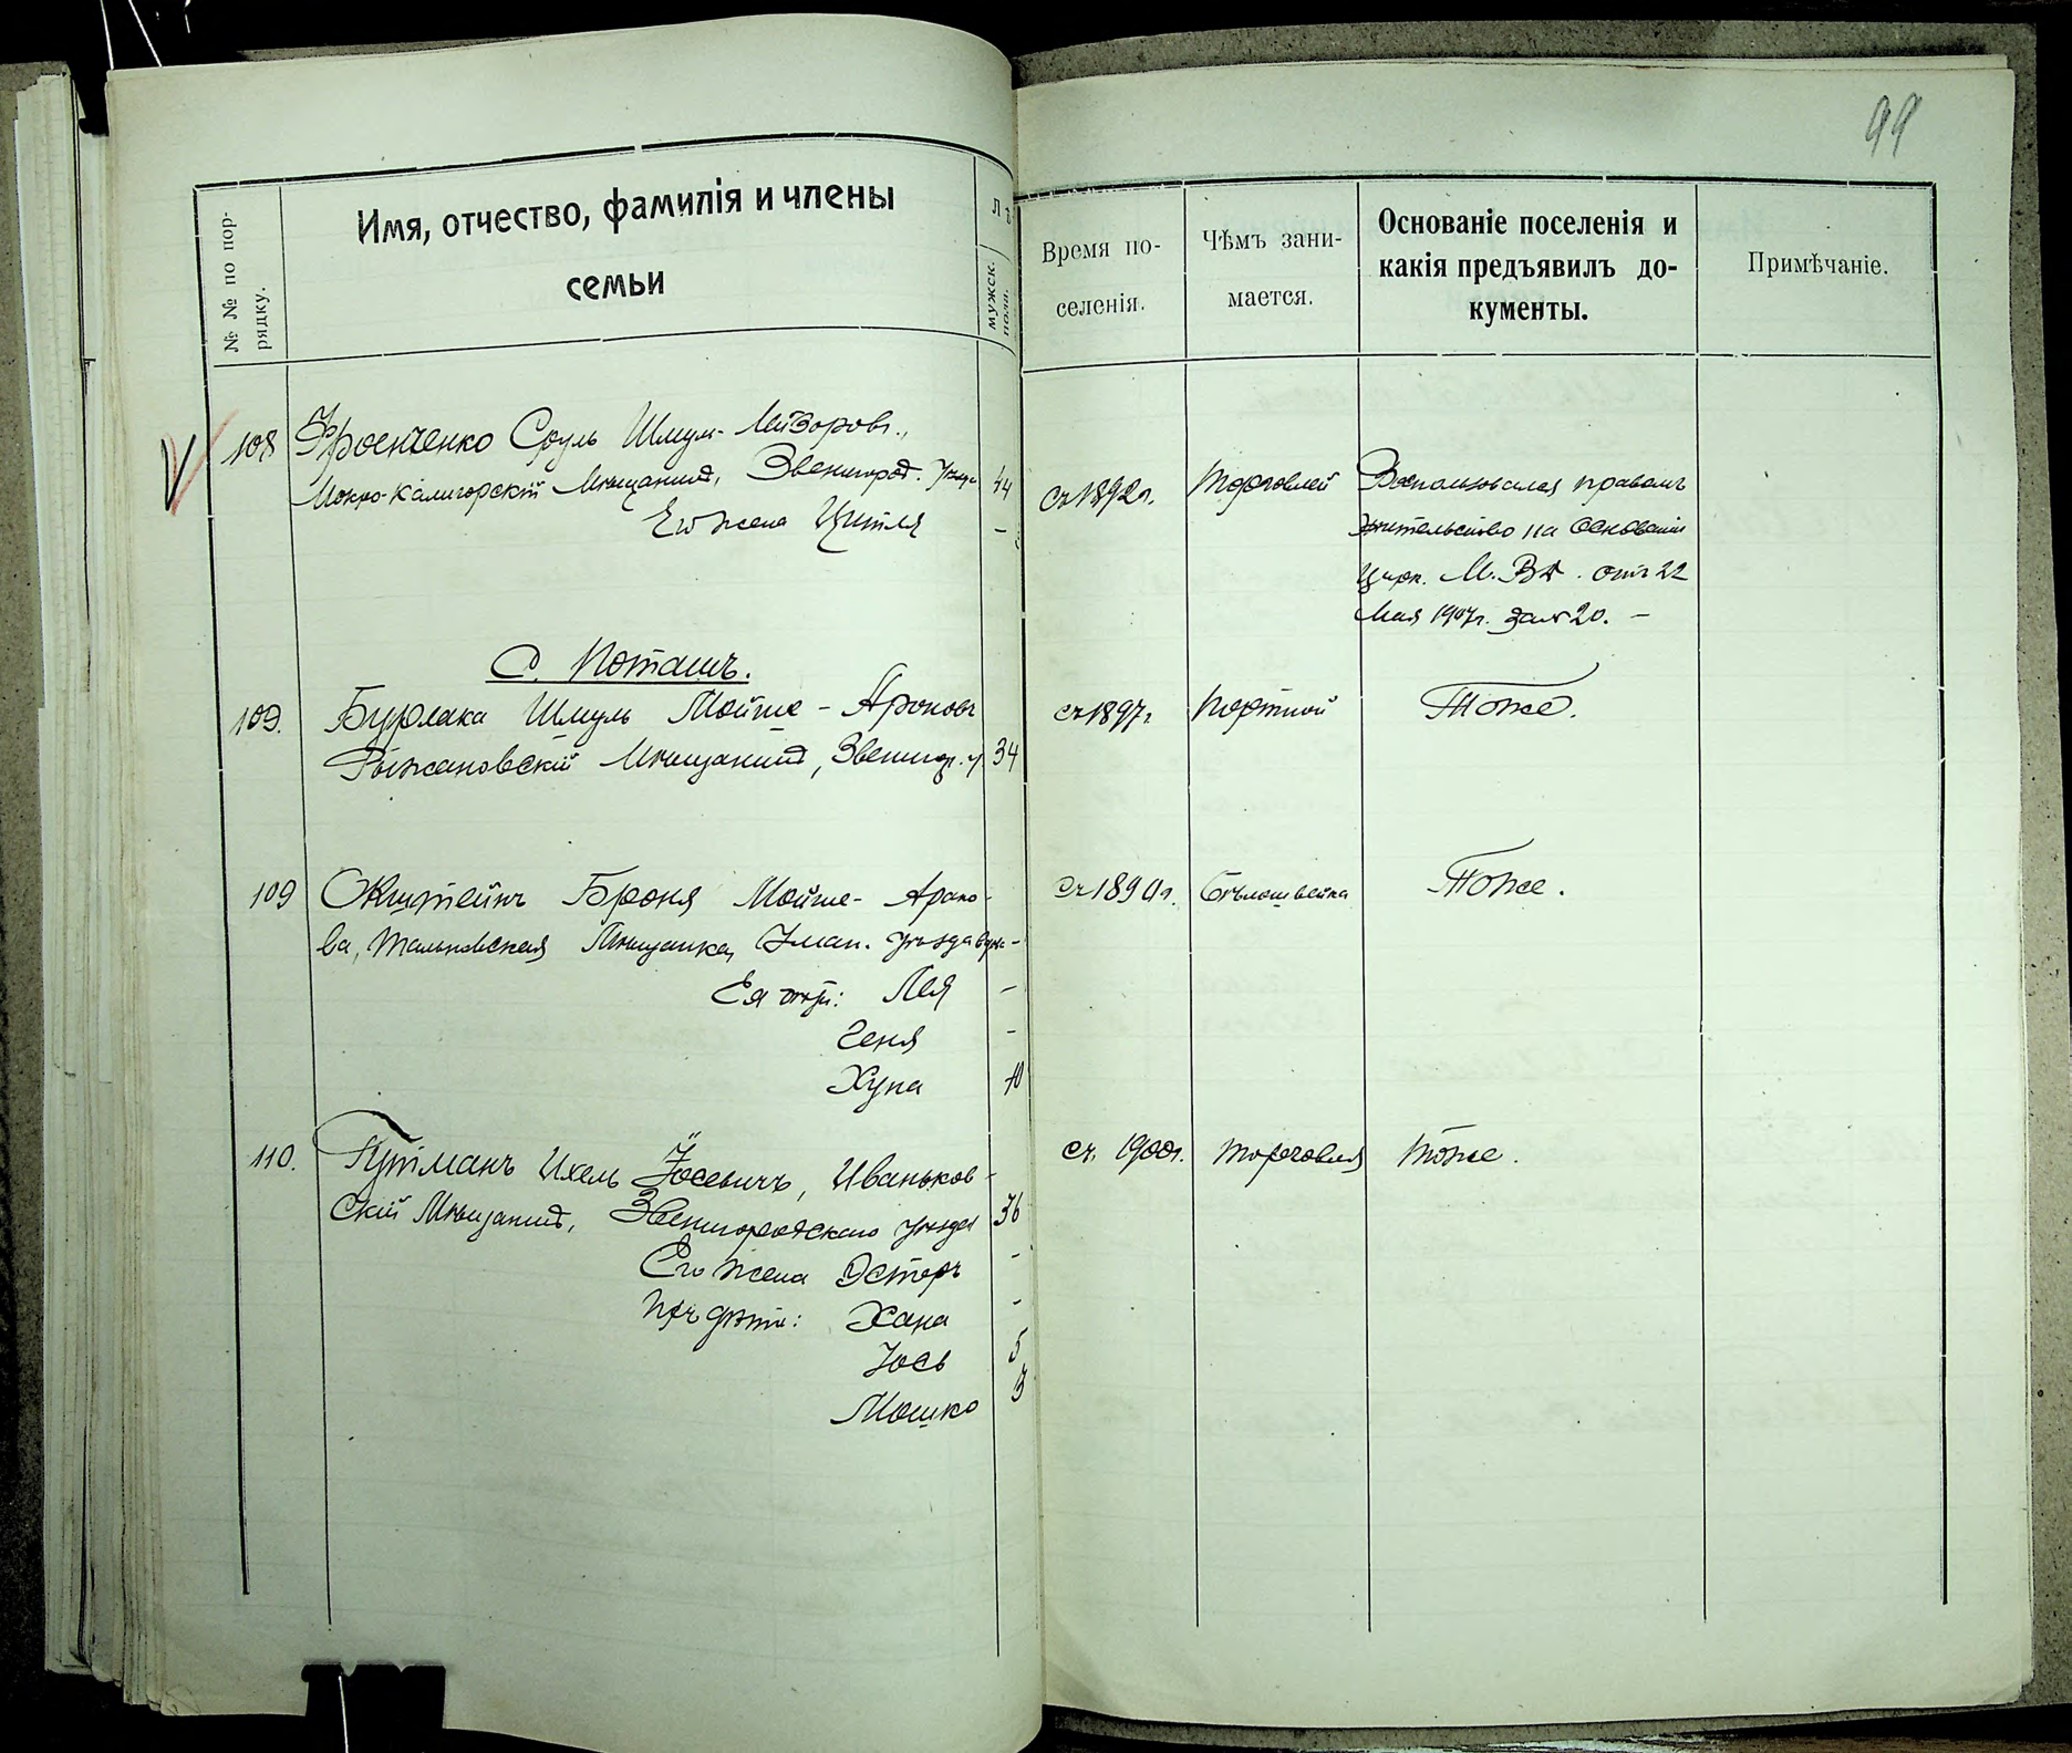 99
№ № по пор-
рядку.
Имя, отчество, фамилія и члены
семьи
Лѣ
мужск.
пола.
Время по-
селенія.
Чѣмъ зани-
мается.
Основаніе поселенія и
какія предъявилъ до-
кументы.
Примѣчаніе.
108 Сруль Шмул-
Мокро-Калигорскій Мѣщанинъ, Звенигород. 44
Его жена Цитля -
Съ 1892г. Торговлей
Воспользовался правомъ
жительство на основаніи
Цирк. М.В.Д. отъ 22
Мая 1907г. за № 20. -
С. Поташъ.
109. Бурлака Шмуль Мойше - Ароновъ
Рыжановскій Мѣщанинъ, Звенигор. у. 34
съ 1897г. Портной Тоже.
109 Окштейнъ Броня Мойше- Ароно-
ва, Тальновская Мѣщанка, Уман. уѣзда вдова -
Ея дѣти: Лея -
Геня -
Хуна 10
Бѣлошвейка Тоже.
110. Гутманъ Ихель Іосевичъ, Иваньков-
скій Мѣщанинъ, Звенигородскаго уѣзда 36
Его жена Эстеръ -
Ихъ дѣти: Хана -
Іось 5
Мошко 3
съ 1900г. торговля тоже.